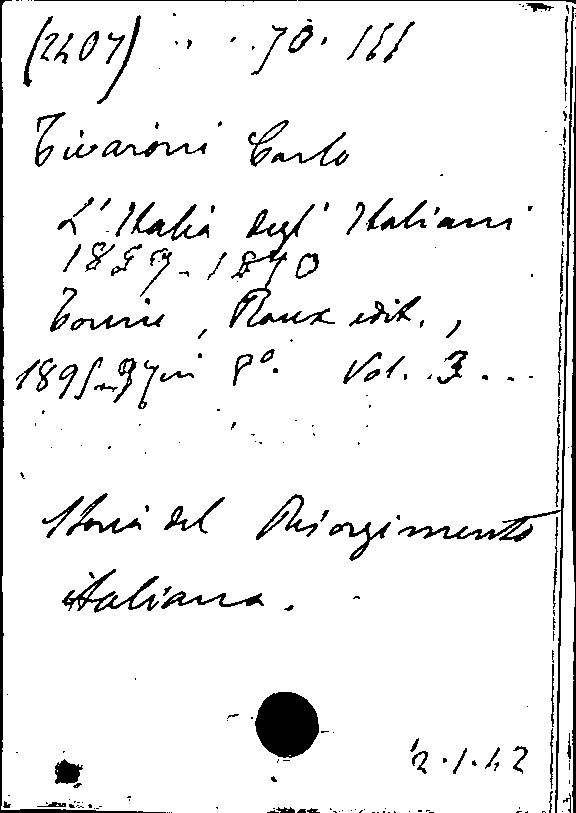 (2407) 70. 166
Tivaroni Carlo
L' Italia degl' Italiani
1859-1870
Torino, Roux edit.,
1895-97 in 8°. Vol. 3...
Storia del Risorgimento
italiana.
2.1.42